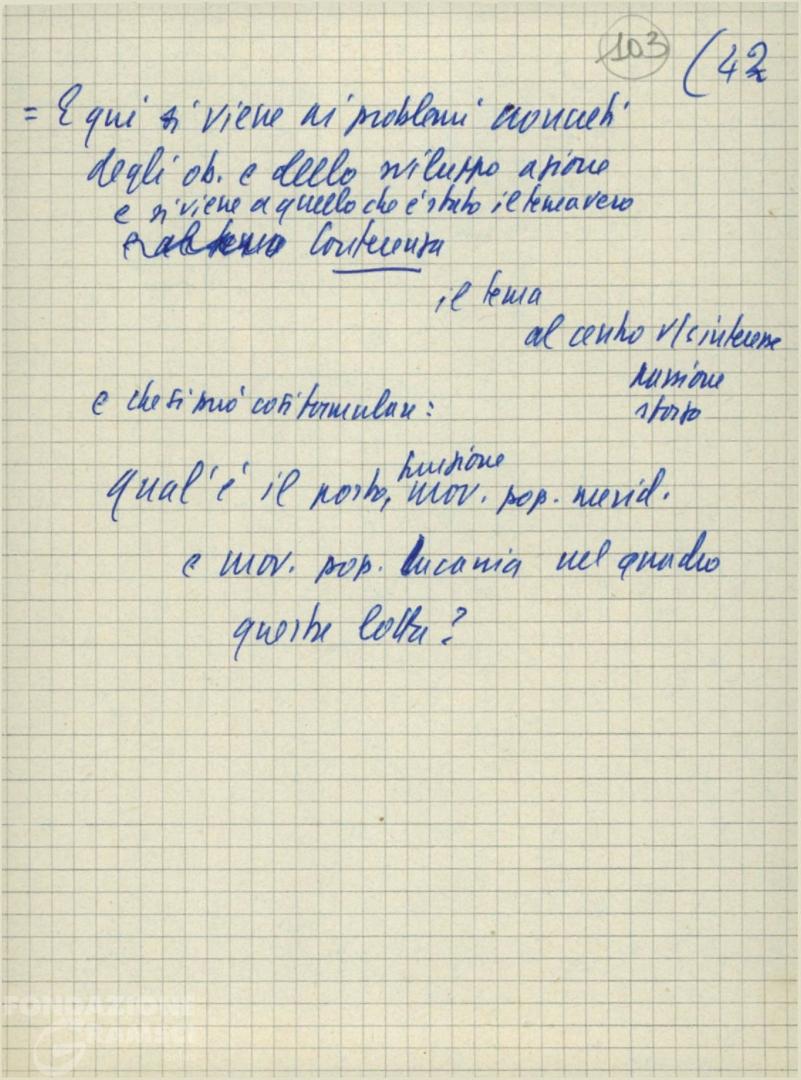 103
(42
= E qui si viene ai problemi concreti
degli ob. e dello sviluppo azione
e si viene a quello che è stato il tema vero
Conferenza
il tema
al centro v/s interesse
passione
sforzo
e che si può così formulare:
funzione
qual'è il posto, mov. pop. merid.
e mov. pop. Lucania nel quadro
questa lotta?
FONDAZIONE
GRAMSCI